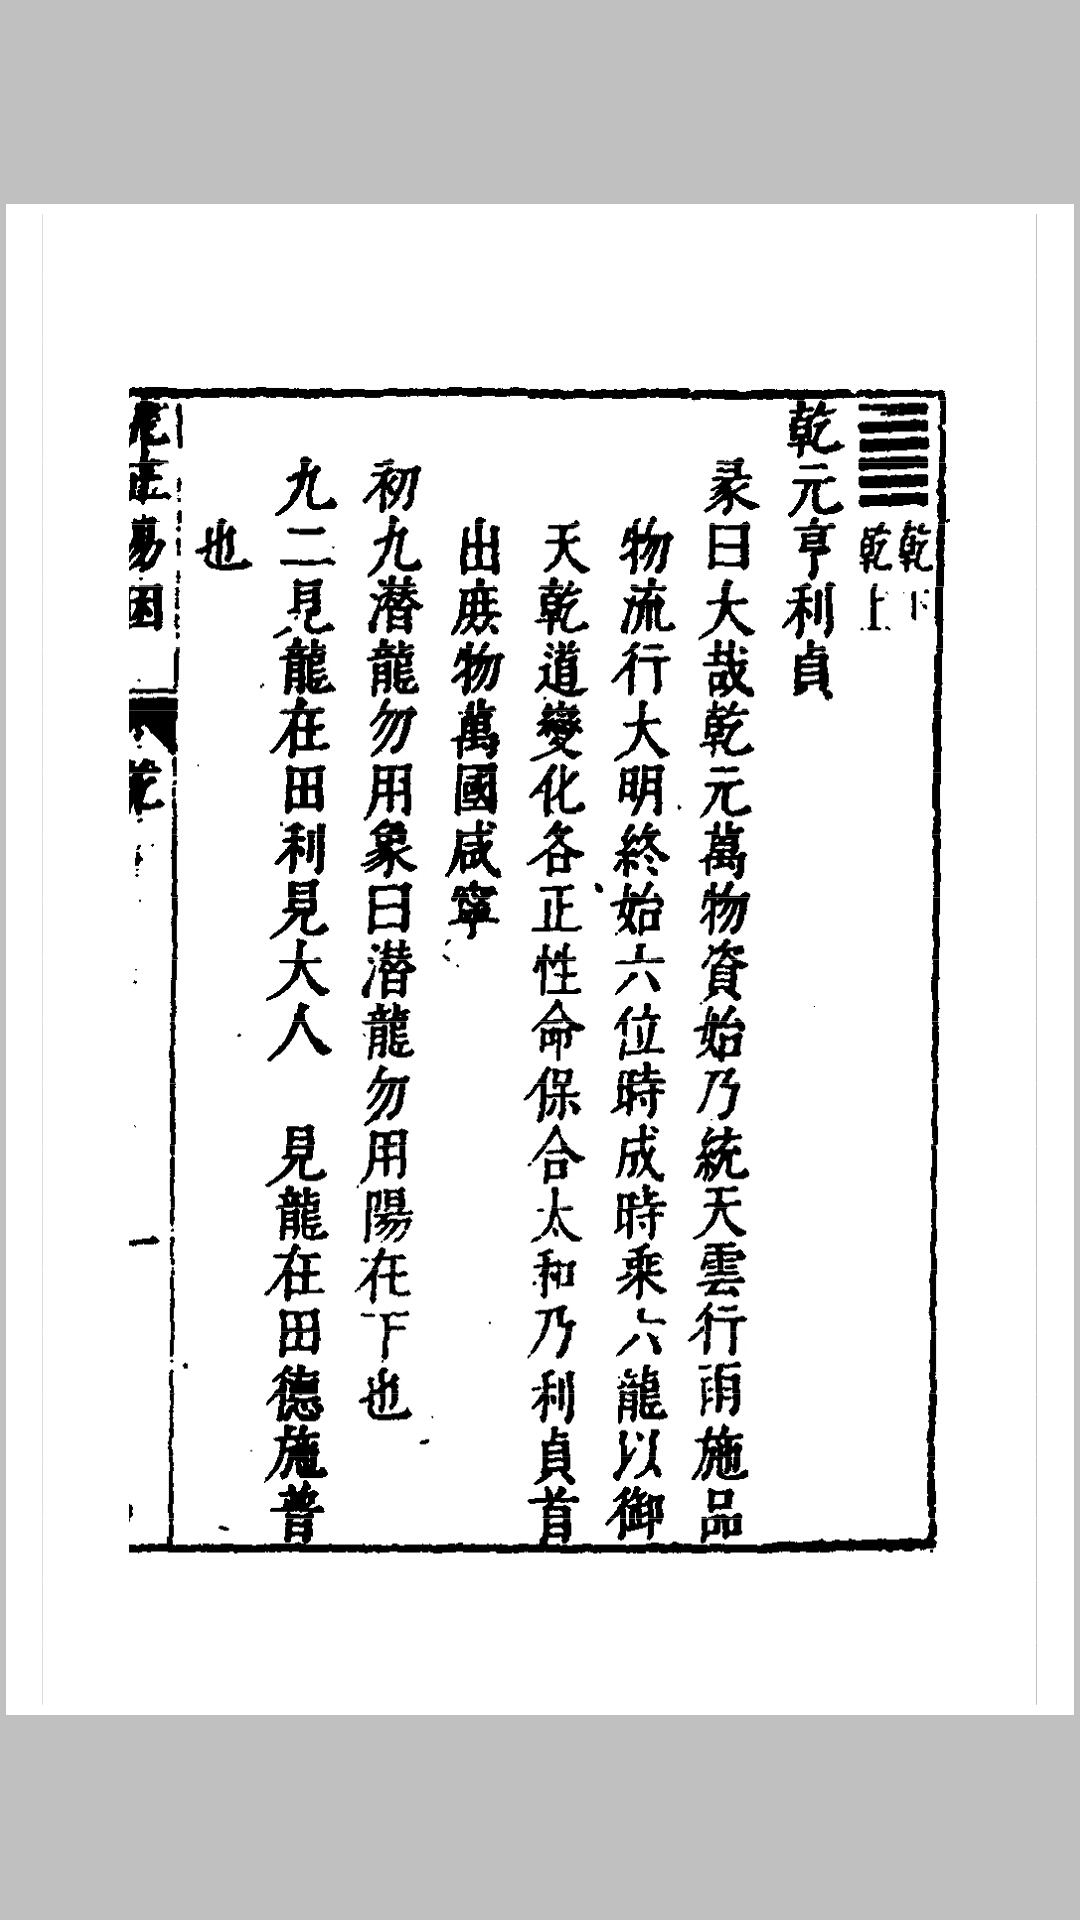 ䷀ 乾下
乾上
乾元亨利貞
彖曰大哉乾元萬物資始乃統天雲行雨施品
物流行大明終始六位時成時乘六龍以御
天乾道變化各正性命保合太和乃利貞首
出庶物萬國咸寧
初九潛龍勿用象曰潛龍勿用陽在下也
九二見龍在田利見大人 見龍在田德施普
也
正易因 乾 一